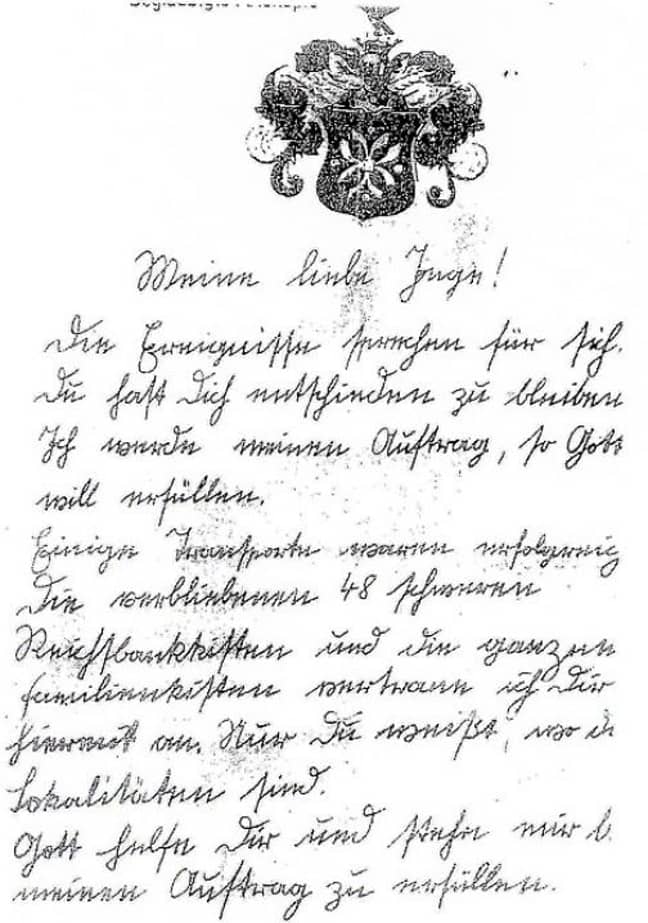 Meine liebe Inge!
Die Ereignisse sprechen für sich.
Du hast Dich entschieden zu bleiben
Ich werde meinen Auftrag, so Gott
will erfüllen.
Einige Transporte waren erfolgreich
Die verbliebenen 48 schweren
Reichsbankkisten und die ganzen
Familienkisten vertraue ich Dir
hiermit an. Nur Du weißt, wo di
Lokalitäten sind.
Gott helfe Dir und stehe mir b.
meinen Auftrag zu erfüllen.